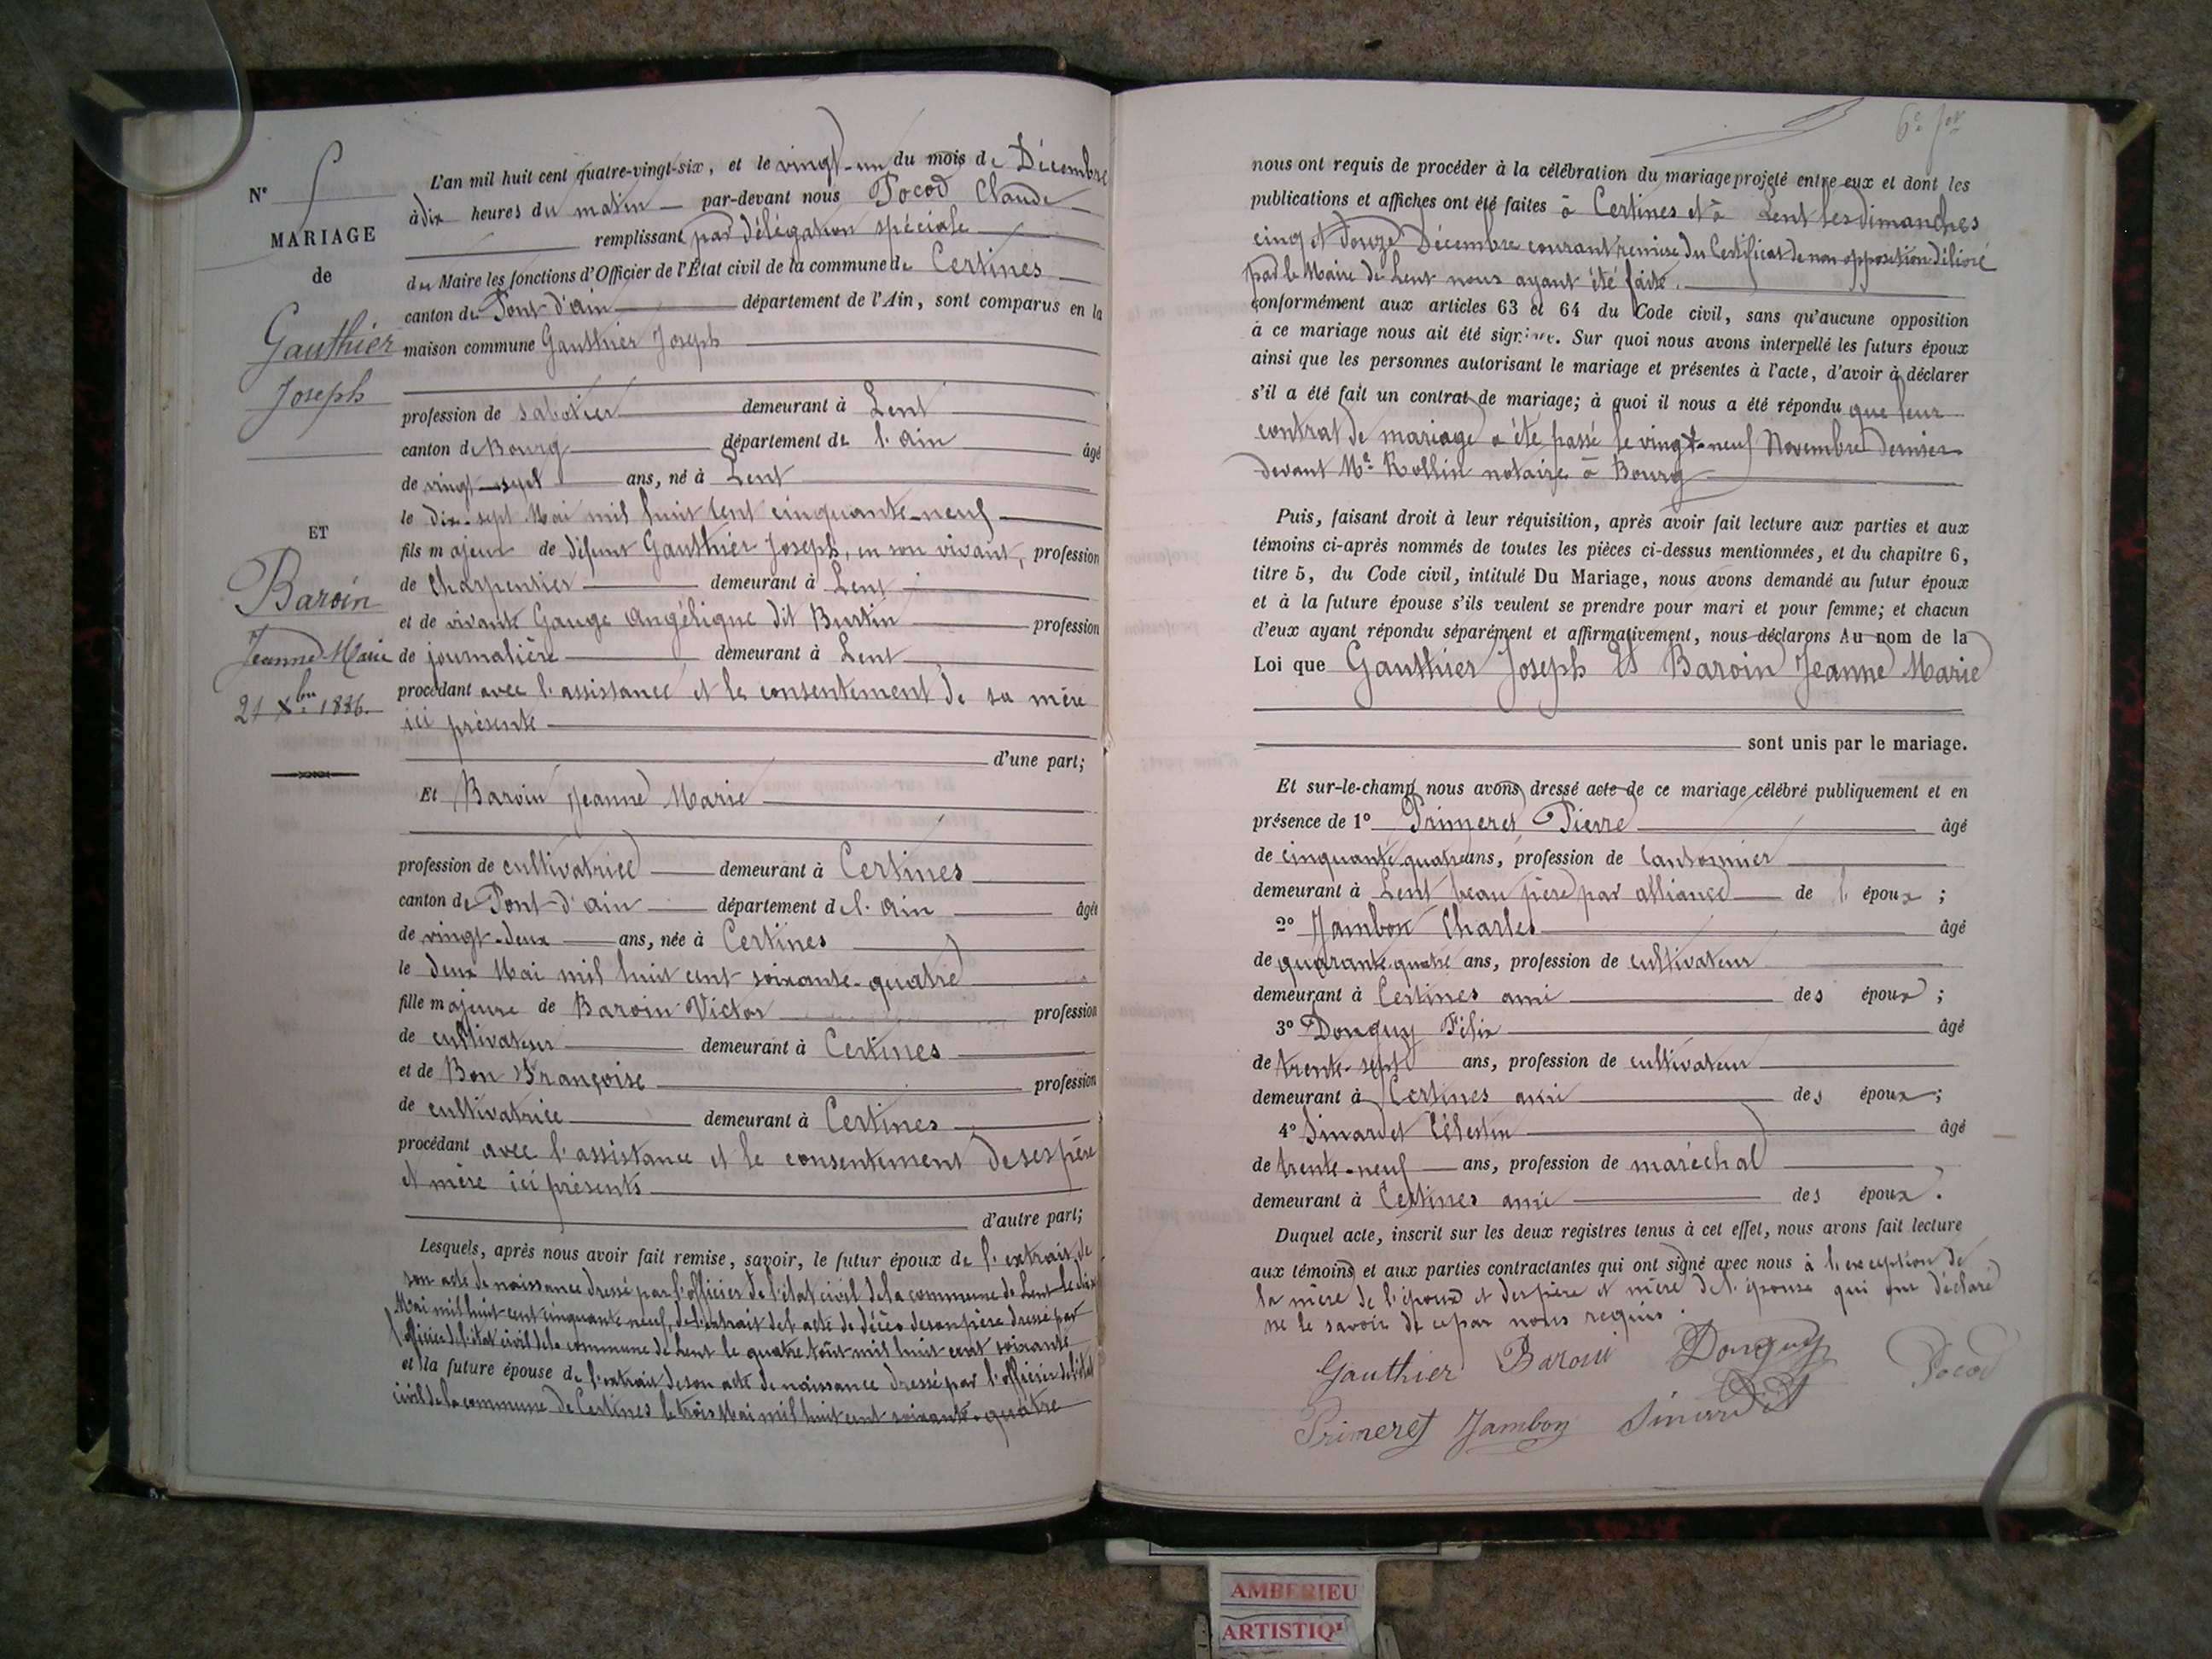 N° 5
MARIAGE
de
Gauthier
Joseph
ET
Baroin
Jeanne Marie
21 Xbre 1886.
L'an mil huit cent quatre-vingt-six, et le vingt-un du mois de Décembre
à dix heures du matin par-devant nous Pocod Claude
remplissant par délégation spéciale
du Maire les fonctions d'Officier de l'État civil de la commune de Certines
canton de Pont-d'ain département de l'Ain, sont comparus en la
maison commune Gauthier Joseph
profession de sabotier demeurant à Lent
canton de Bourg département de l'ain âgé
de vingt-sept ans, né à Lent
le dix-sept Mai mil huit cent cinquante-neuf
fils majeur de défunt Gauthier Joseph, en son vivant, profession
de Charpentier demeurant à Lent
et de vivante Gauge Angélique dit Burtin profession
de journalière demeurant à Lent
procédant avec l'assistance et le consentement de sa mère
ici présente
d'une part;
Et Baroin Jeanne Marie
profession de cultivatrice demeurant à Certines
canton de Pont-d'ain département de l'ain âgée
de vingt-deux ans, née à Certines
le deux Mai mil huit cent soixante-quatre
fille majeure de Baroin Victor profession
de cultivateur demeurant à Certines
et de Bon Françoise profession
de cultivatrice demeurant à Certines
procédant avec l'assistance et le consentement de ses père
et mère ici présents
d'autre part;
Lesquels, après nous avoir fait remise, savoir, le futur époux de l'extrait de
son acte de naissance dressé par l'officier de l'état civil de la commune de Lent le dix
Mai mil huit cent cinquante neuf, de l'extrait de l'acte de décès de son père dressé par
l'officier de l'état civil de la commune de Lent le quatre août mil huit cent soixante
et la future épouse de l'extrait de son acte de naissance dressé par l'officier de l'état
civil de la commune de Certines le trois Mai mil huit cent soixante-quatre
nous ont requis de procéder à la célébration du mariage projeté entre eux et dont les
publications et affiches ont été faites à Certines et à Lent les dimanches
cinq et douze Décembre courant remise du Certificat de non opposition délivré
par le Maire de Lent nous ayant été faite.
conformément aux articles 63 et 64 du Code civil, sans qu'aucune opposition
à ce mariage nous ait été signifiée. Sur quoi nous avons interpellé les futurs époux
ainsi que les personnes autorisant le mariage et présentes à l'acte, d'avoir à déclarer
s'il a été fait un contrat de mariage; à quoi il nous a été répondu que leur
contrat de mariage a été passé le vingt-neuf Novembre dernier
devant Me Rollin notaire à Bourg
Puis, faisant droit à leur réquisition, après avoir fait lecture aux parties et aux
témoins ci-après nommés de toutes les pièces ci-dessus mentionnées, et du chapitre 6,
titre 5, du Code civil, intitulé Du Mariage, nous avons demandé au futur époux
et à la future épouse s'ils veulent se prendre pour mari et pour femme; et chacun
d'eux ayant répondu séparément et affirmativement, nous déclarons Au nom de la
Loi que Gauthier Joseph Et Baroin Jeanne Marie
sont unis par le mariage.
Et sur-le-champ nous avons dressé acte de ce mariage célébré publiquement et en
présence de 1° Primeret Pierre âgé
de cinquante quatre ans, profession de Cantonnier
demeurant à Lent beau père par alliance de l'époux ;
2° Jambon Charles âgé
de quarante quatre ans, profession de cultivateur
demeurant à Certines ami des époux ;
3° Donguy Félix âgé
de trente-sept ans, profession de cultivateur
demeurant à Certines ami des époux ;
4° Sinardet Célestin âgé
de trente-neuf ans, profession de maréchal
demeurant à Certines ami des époux.
Duquel acte, inscrit sur les deux registres tenus à cet effet, nous avons fait lecture
aux témoins et aux parties contractantes qui ont signé avec nous à l'exception de
la mère de l'époux et des père et mère de l'épouse qui ont déclaré
ne le savoir de ce par nous requis.
Gauthier Baroin Donguy Pocod
Primeret Jambon Sinardet
AMBERIEU
ARTISTIQ